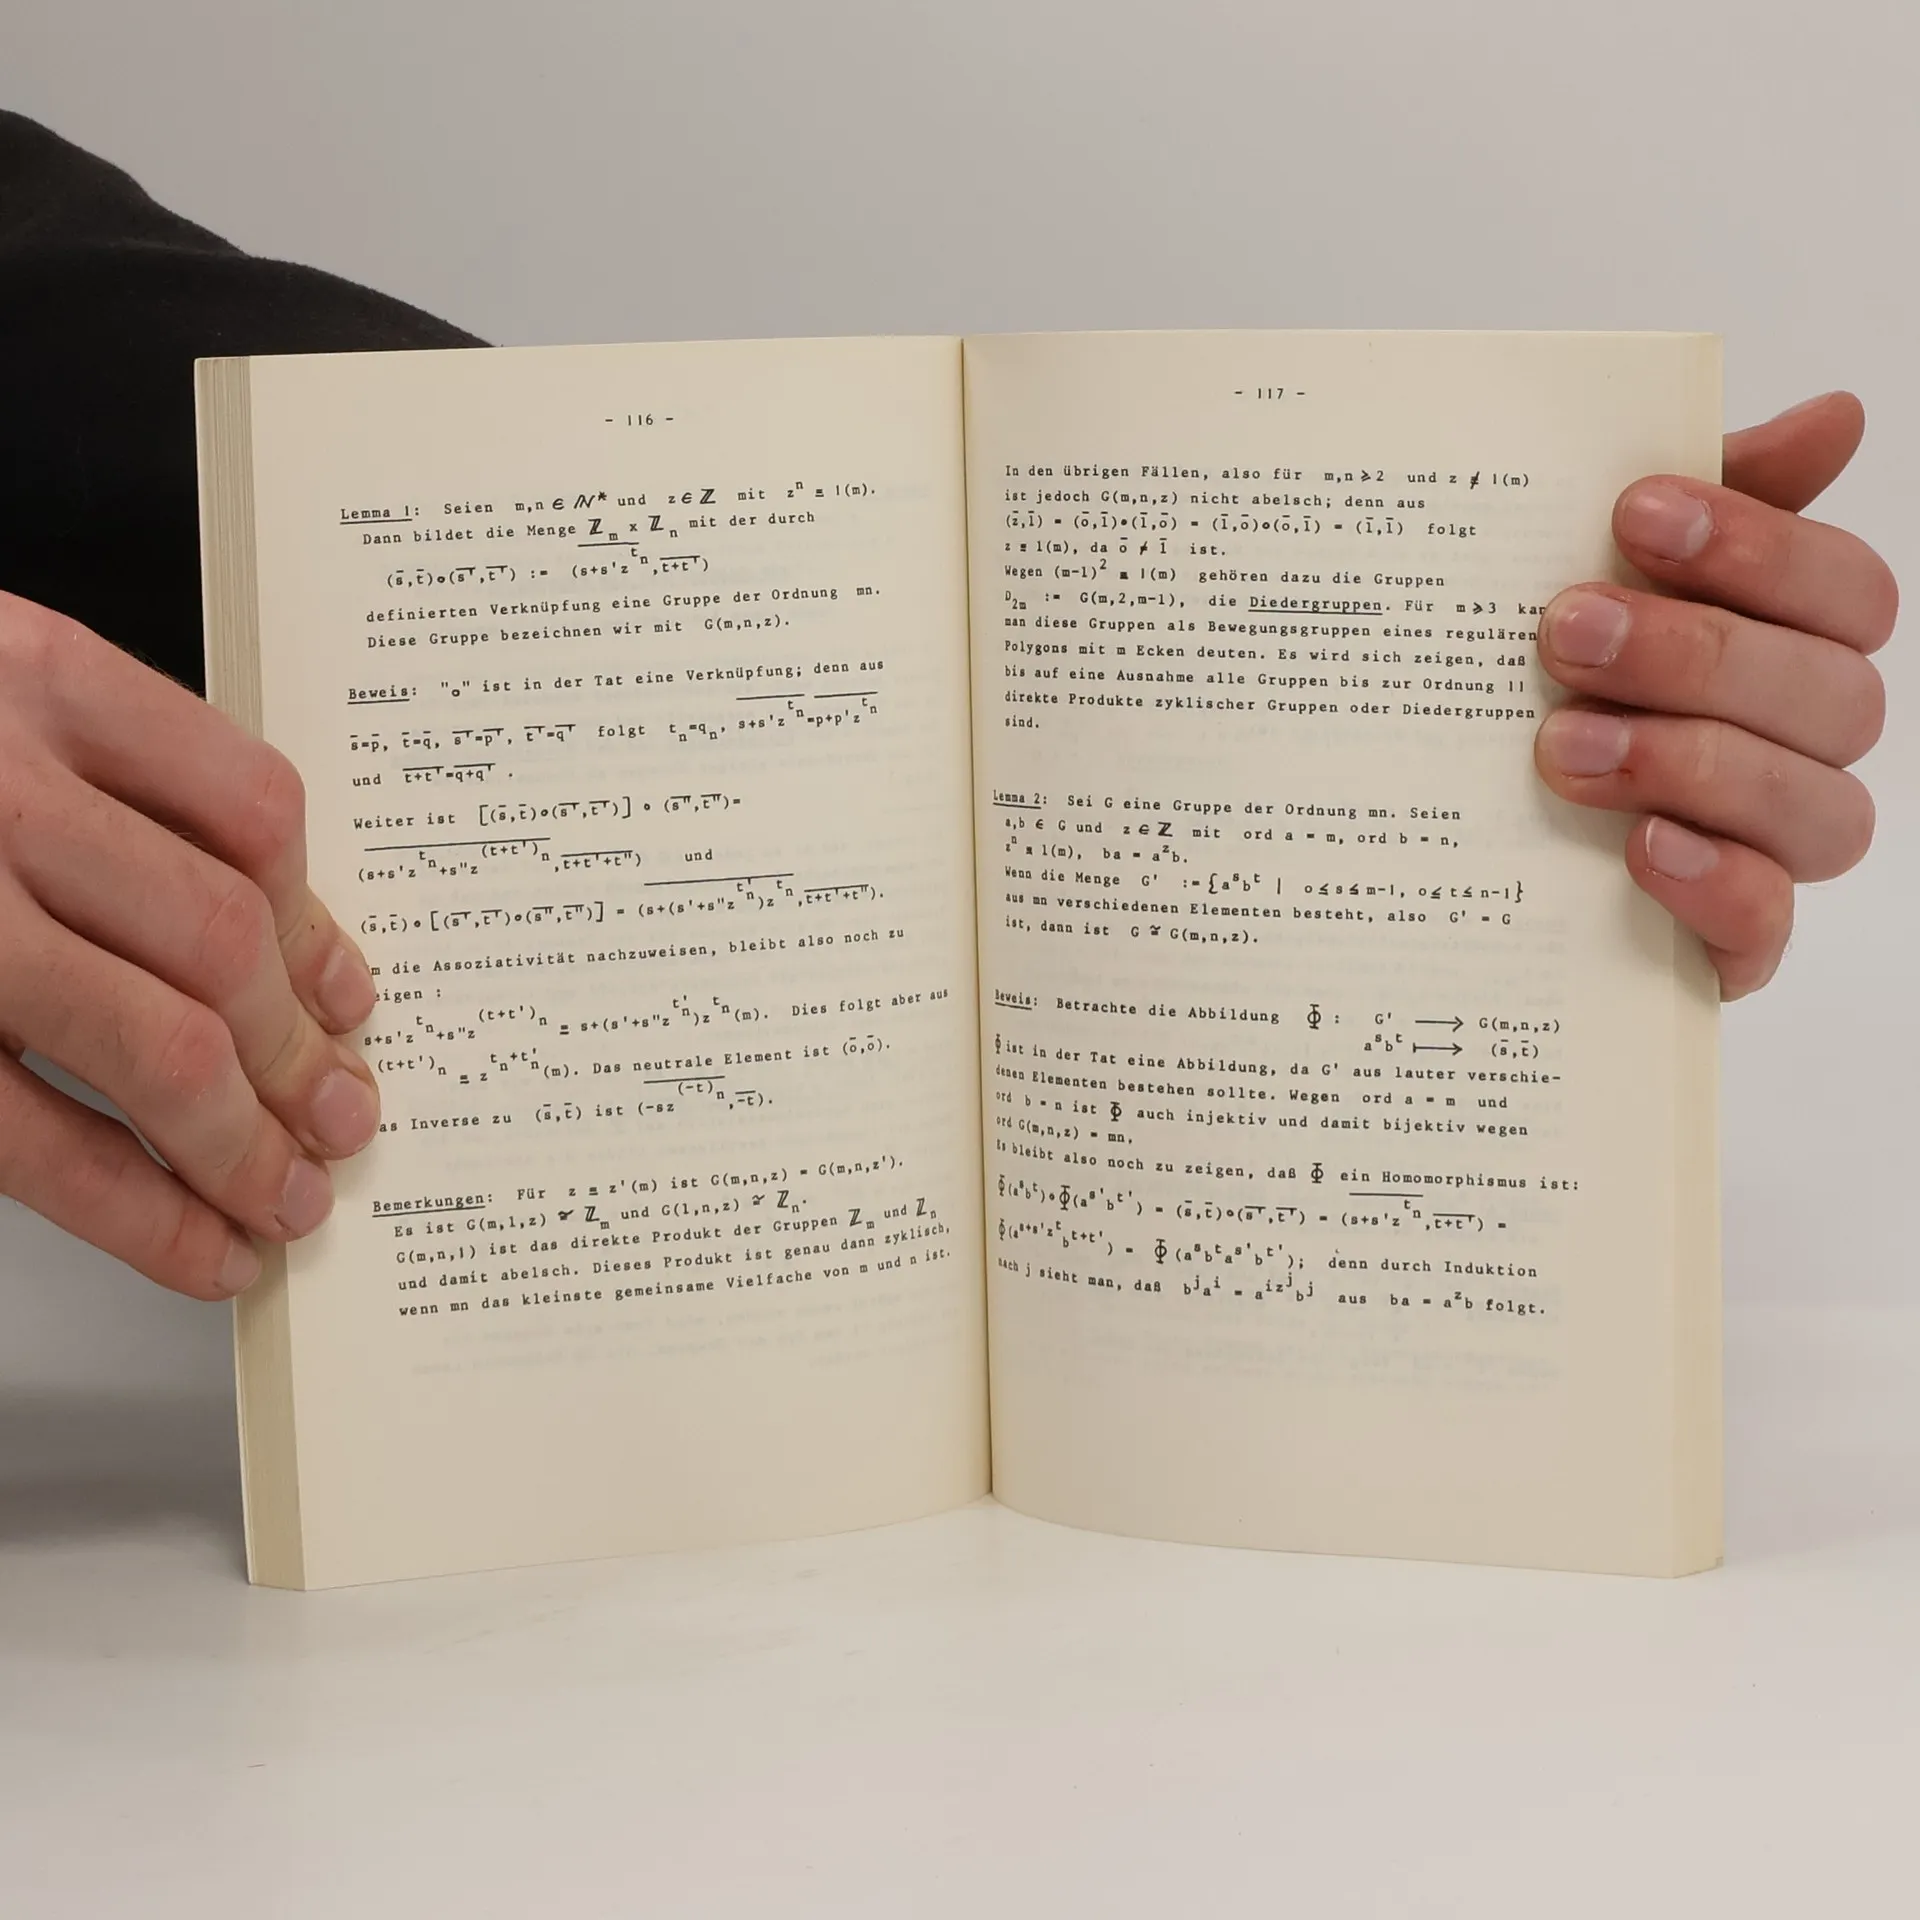 - 116 -
Lemma 1: Seien m,n ∈ ℕ* und z ∈ ℤ mit zⁿ ≡ 1(m).
Dann bildet die Menge ℤ_m x ℤ_n mit der durch
(s̄,t̄)∘(s̄',t̄') := (\overline{s+s'z^{t_n}},\overline{t+t'})
definierten Verknüpfung eine Gruppe der Ordnung mn.
Diese Gruppe bezeichnen wir mit G(m,n,z).
Beweis: "∘" ist in der Tat eine Verknüpfung; denn aus
s̄=p̄, t̄=q̄, s̄'=p̄', t̄'=q̄' folgt t_n=q_n, \overline{s+s'z^{t_n}}=\overline{p+p'z^{t_n}}
und \overline{t+t'}=\overline{q+q'} .
Weiter ist [(s̄,t̄)∘(s̄',t̄')] ∘ (s̄",t̄")=
(\overline{s+s'z^{t_n}+s"z^{(t+t')_n}},\overline{t+t'+t"}) und
(s̄,t̄)∘[(s̄',t̄')∘(s̄",t̄")] = (\overline{s+(s'+s"z^{t'_n})z^{t_n}},\overline{t+t'+t"}).
m die Assoziativität nachzuweisen, bleibt also noch zu
eigen :
s+s'z^{t_n}+s"z^{(t+t')_n} ≡ s+(s'+s"z^{t'_n})z^{t_n}(m). Dies folgt aber aus
^{(t+t')_n} ≡ z^{t_n+t'_n}(m). Das neutrale Element ist (ō,ō).
as Inverse zu (s̄,t̄) ist (\overline{-sz^{(-t)_n}},\overline{-t}).
Bemerkungen: Für z ≡ z'(m) ist G(m,n,z) = G(m,n,z').
Es ist G(m,1,z) ≃ ℤ_m und G(1,n,z) ≃ ℤ_n.
G(m,n,1) ist das direkte Produkt der Gruppen ℤ_m und ℤ_n
und damit abelsch. Dieses Produkt ist genau dann zyklisch,
wenn mn das kleinste gemeinsame Vielfache von m und n ist.
- 117 -
In den übrigen Fällen, also für m,n ⩾ 2 und z ≢ 1(m)
ist jedoch G(m,n,z) nicht abelsch; denn aus
(z̄,1̄) = (ō,1̄)∘(1̄,ō) = (1̄,ō)∘(ō,1̄) = (1̄,1̄) folgt
z ≡ 1(m), da ō ≠ 1̄ ist.
Wegen (m-1)² ≡ 1(m) gehören dazu die Gruppen
D_{2m} := G(m,2,m-1), die Diedergruppen. Für m ⩾ 3 kan
man diese Gruppen als Bewegungsgruppen eines regulären
Polygons mit m Ecken deuten. Es wird sich zeigen, daß
bis auf eine Ausnahme alle Gruppen bis zur Ordnung 11
direkte Produkte zyklischer Gruppen oder Diedergruppen
sind.
Lemma 2: Sei G eine Gruppe der Ordnung mn. Seien
a,b ∈ G und z ∈ ℤ mit ord a = m, ord b = n,
zⁿ ≡ 1(m), ba = a^z b.
Wenn die Menge G' := {a^s b^t | o ≤ s ≤ m-1, o ≤ t ≤ n-1}
aus mn verschiedenen Elementen besteht, also G' = G
ist, dann ist G ≅ G(m,n,z).
Beweis: Betrachte die Abbildung Φ : G' ⟶ G(m,n,z)
a^s b^t ⟼ (s̄,t̄)
Φ ist in der Tat eine Abbildung, da G' aus lauter verschie-
denen Elementen bestehen sollte. Wegen ord a = m und
ord b = n ist Φ auch injektiv und damit bijektiv wegen
ord G(m,n,z) = mn.
Es bleibt also noch zu zeigen, daß Φ ein Homomorphismus ist:
Φ(a^s b^t)∘Φ(a^{s'} b^{t'}) = (s̄,t̄)∘(s̄',t̄') = (\overline{s+s'z^{t_n}},\overline{t+t'}) =
Φ(a^{s+s'z^t} b^{t+t'}) = Φ(a^s b^t a^{s'} b^{t'}); denn durch Induktion
nach j sieht man, daß b^j a^i = a^{iz^j} b^j aus ba = a^z b folgt.